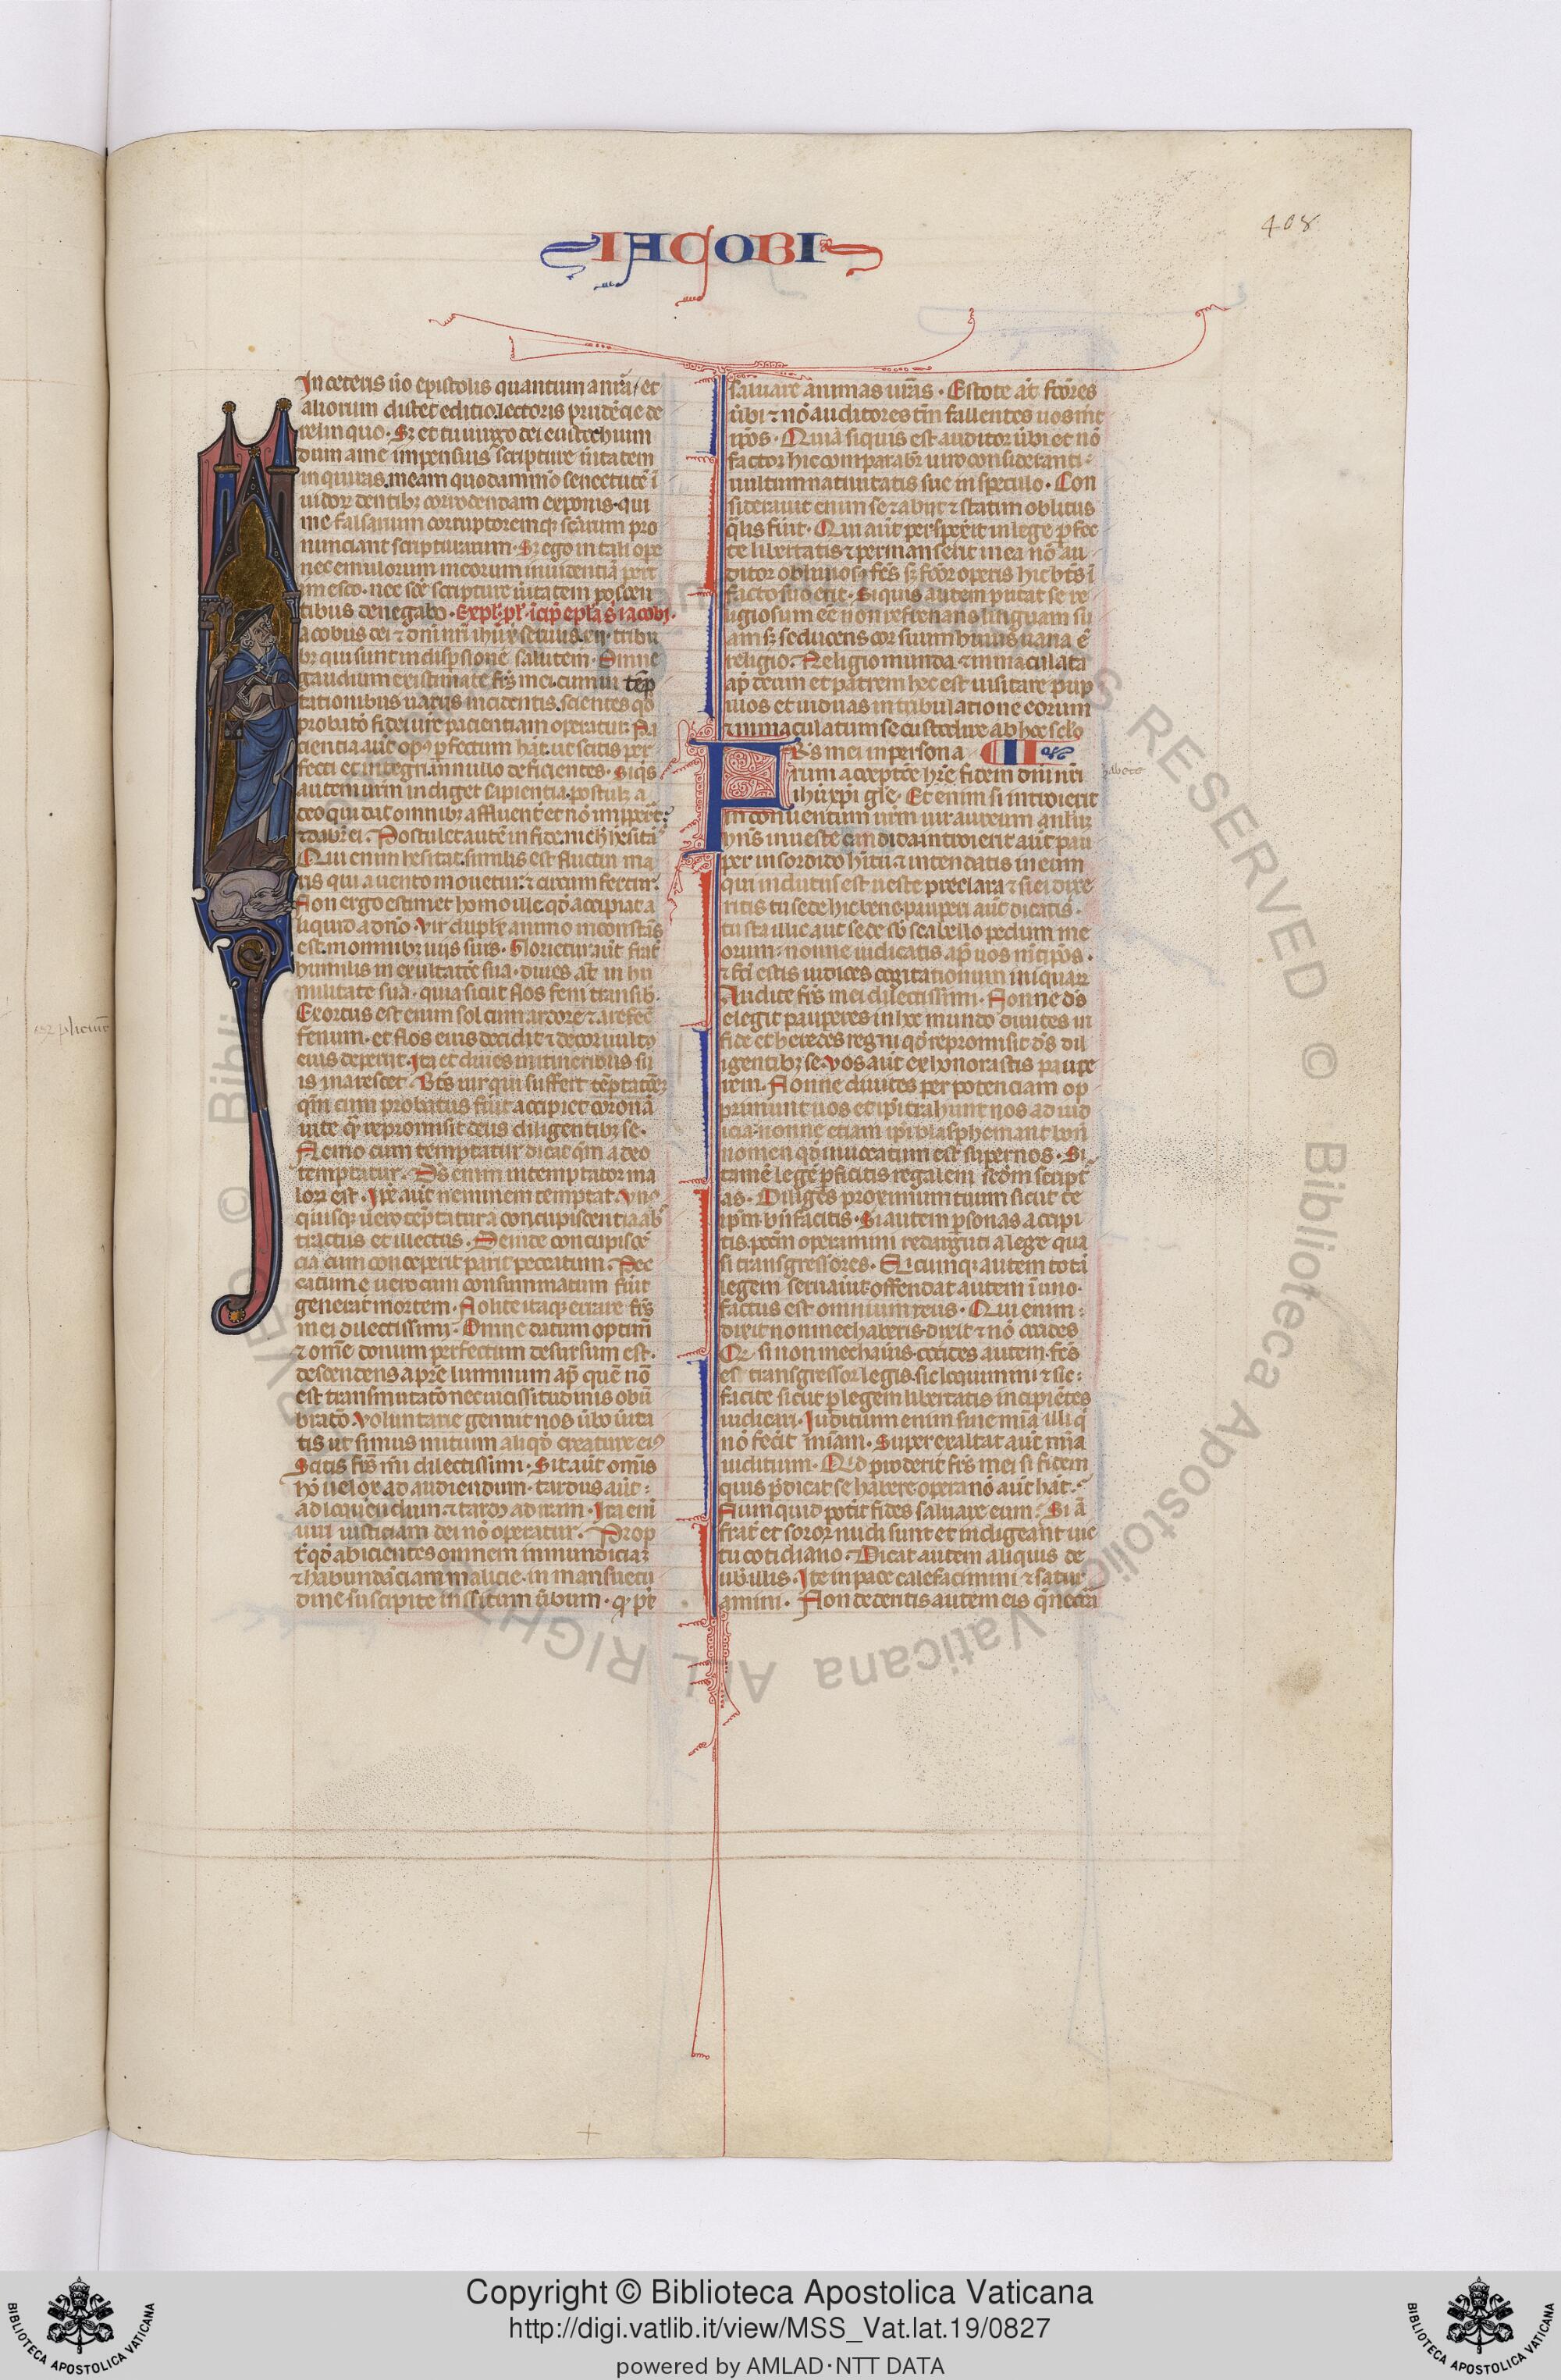 IACOBI
408
In ceteris ũo epistolis quantum a nr̃a / et
aliorum distet editio. lectoris prudẽcie de
relinquo. Sꝫ et tu uirgo dei eustochium
dum a me impensius scripture ũitatem
inquiras. meam quodammõ senectutẽ ĩ
uidoꝝ dentibꝫ corrodendam exponis. qui
me falsarium corruptoremqꝫ scãrum pro
nunciant scripturarum. Sꝫ ego in tali ope
nec emulorum meorum inuidentiã pert
imesco. nec sce scripture ũitatem poscen
tibus denegabo. Expl. pl'. icip̃ epl'a s̃ iacobi.
acobus dei ⁊ dnĩ nrĩ ihũ xp̃i seruus. xij. tribu
bꝫ qui sunt in dispsione salutem. Omne
gaudium existimate frs̃ mei. cum in tẽp
tationibus uarijs incideritis. scientes qđ
probatõ fidei ur̃e pacientiam operatur. Pa
cientia aũt opꝰ ꝑfectum hat. ut sitis per
fecti et integri. in nullo deficientes. Siq̃s
autem ur̃m indiget sapientia. postulꝫ a
deo qui dat omnibꝫ affluent̃ et nõ imꝓpert.
⁊ dabr̃ ei. Postulet autẽ in fide. nich̃ hesitãs
Qui enim hesitat. similis est fluctui ma
ris qui a uento mouetur. ⁊ circum fertur.
Non ergo estimet homo ille. qđ accipiat a
liquid a dnõ. Vir duplex animo inconstãs
est. in omnibꝫ uijs suis. Glorietur aũt frat̃
humilis in exultatõe sua. diues at̃ in hu
militate sua. quia sicut flos feni transib.
Exortus est enim sol cum ardore. ⁊ arefec̃
fenum. et flos eius decidit ⁊ decor uultꝰ
eius deperiit. Ita et diues in itineribus su
is marescet. Bt̃s uir qui suffert tẽptatõeꝫ
qm̃ cum probatus fuit̃ accipiet coronã
uite qꝫ repromisit deus diligentibꝫ se.
Nemo cum temptatur dicat qm̃ a deo
temptatur. Ds̃ enim intemptator ma
loꝝ est. Ip̃e aũt neminem temptat. Vnꝰ
quisqꝫ uero tẽptatur a concupiscentia ab
tractus et illectus. Deinde concupiscẽ
cia cum conceperit parit peccatum. Pec
catum ẽ uero cum consummatum fuit̃
generat mortem. Nolite itaqꝫ errare frs̃
mei dilectissimi. Omne datum optim̃
⁊ om̃e donum perfectum desursum est.
descendens a patre luminum ap̃ quẽ nõ
est transmutatõ nec uicissitudinis obũ
bratõ. Voluntarie genuit nos ũbo ũita
tis ut simus initium aliqđ creature eiꝰ
Scitis frs̃ mi dilectissimi. Sit aũt omĩs
hõ uelox ad audiendum. tardus aũt.
ad loquendum. ⁊ tardꝰ ad iram. Ira eni
uiri iusticiam dei nõ operatur. Prop
t̃ qđ abicientes omnem inmundiciaꝫ
⁊ habundãciam malicie. in mansuetu
dine suscipite insitum ũbum. qꝫ pt̃
saluare animas ur̃as. Estote at̃ fcõres
ũbi ⁊ nõ auditores tm̃ fallentes uosmet
ip̃os. Quia siquis est auditor ũbi et nõ
factor hic comparabr̃ uiro consideranti.
uultum natiuitatis sue in speculo. Con
siderauit enim se ⁊ abijt ⁊ statim oblitus
q̃lis fuit̃. Qui aũt perspexit in lege ꝑfec
te libertatis ⁊ permanserit in ea nõ au
ditor obliuiosꝰ fcs̃ sꝫ fcõr operis hic bt̃s ĩ
facto suo erit. Siquis autem putat se re
ligiosum eẽ non refrenans linguam su
am sꝫ seducens cor suum huius uana ẽ
religio. Religio munda ⁊ inmaculata
ap̃ deum et patrem hec est. uisitare pup
illos et uiduas in tribulatione eorum
⁊ inmaculatum se custodire ab hoc sc̃lo
FRs̃ mei in persona
rum acceptõe hr̃e fidem dnĩ nr̃i
ihũ xpĩ gl'e. Et enim si introierit
in conuentum ur̃m uir aureum anulũ
hn̄s in ueste candida. introierit aũt pau
per in sordido hĩtu. ⁊ intendatis in eum
qui indutus est ueste preclara ⁊ si ei dixe
ritis tu sede hic bene. pauperi aũt dicatis.
tu sta illic aut sede sb̃ scabello pedum me
orum. nonne iudicatis ap̃ uos metip̃os.
⁊ fcĩ estis iudices cogitationum iniquaꝝ
Audite frs̃ mei dilectissimi. Nonne ds̃
elegit pauperes in hoc mundo diuites in
fide et heredes regni qđ repromisit ds̃ dil
igentibꝫ se. Vos aũt exhonorastis paupe
rem. Nonne diuites per potenciam op
primunt uos et ip̃i trahunt uos ad iud
icia. nonne etiam ip̃i blasphemant bon̄
nomen qđ inuocatum est super nos. Si
tamẽ legẽ ꝑficitis regalem scd̃m script̃
as. Diliges proximum tuum sicut te
ip̃m. bñ facitis. Si autem ꝑsonas accipi
tis. pccm̃ operamini redarguti a lege qua
si transgressores. Quicumqꝫ autem totã
legem seruauit̃. offendat autem ĩ uno.
factus est omnium reus. Qui enim.
dixit non mechaberis. dixit ⁊ nõ occides
Qđ si non mechaũis. occides autem. fcs̃
es transgressor legis. sic loquimini ⁊ sic.
facite sicut ꝑ legem libertatis incipiẽtes
iudicari. Iuditium enim sine mĩa illi q̃
nõ fecit mĩam. Super exaltat aũt mĩa
iuditium. Qid proderit frs̃ mei si fidem
quis ꝑdicat se habere opera nõ aũt hat.
Numquid potit̃ fides saluare eum. Si ã
frat̃ et soror nudi sunt et indigeant uic
tu cotidiano. Dicat autem aliquis de
uob illis. Ite in pace calefacimini ⁊ satur
amini. Non dederitis autem eis q̃ necc̃ia
Copyright © Biblioteca Apostolica Vaticana
http://digi.vatlib.it/view/MSS_Vat.lat.19/0827
powered by AMLAD·NTT DATA
BIBLIOTECA APOSTOLICA VATICANA
BIBLIOTECA APOSTOLICA VATICANA